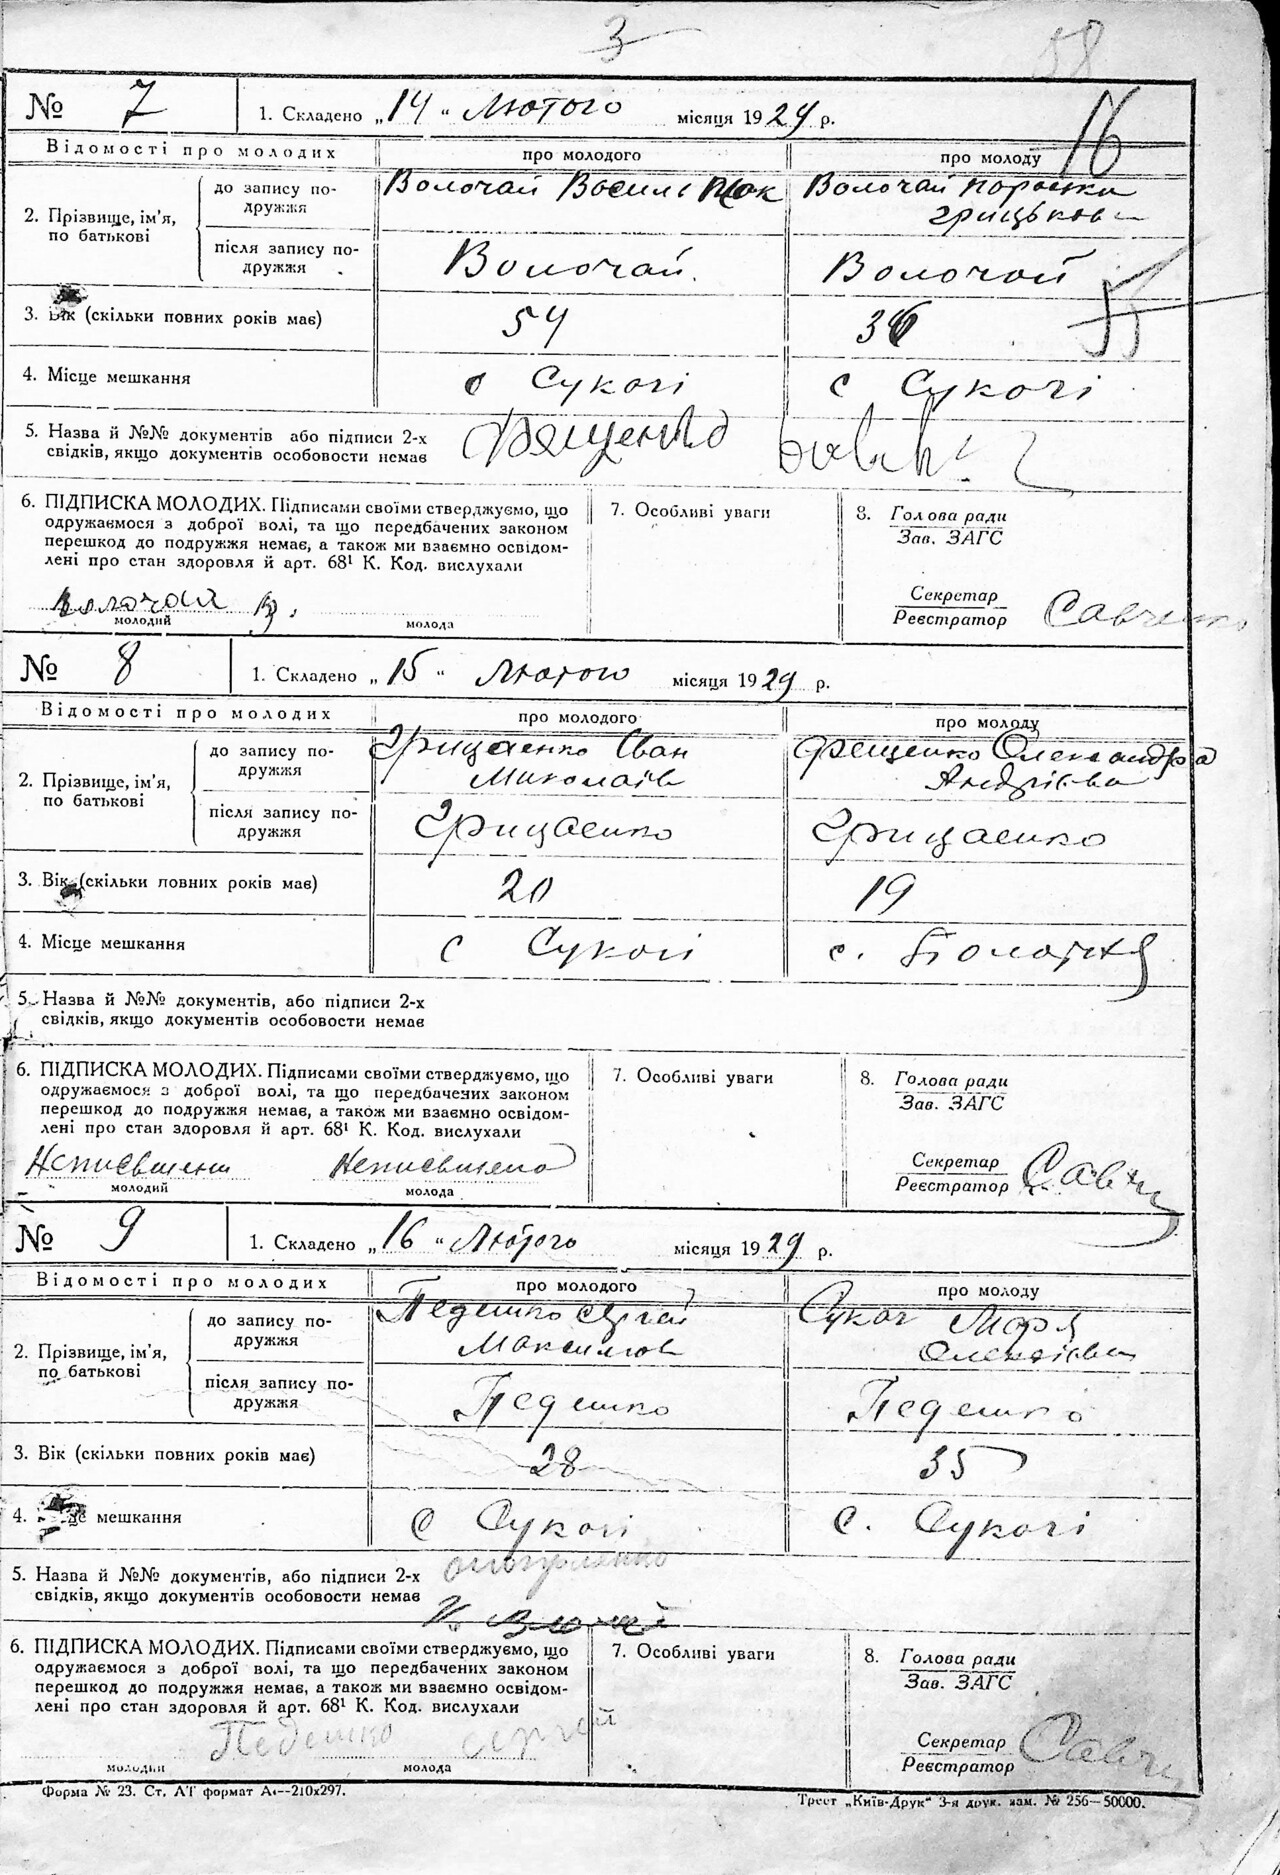 3
58
№ 7 1. Складено „14“ Лютого місяця 1929 р.
16
Відомості про молодих про молодого про молоду
2. Прізвище, ім'я, по батькові
до запису по-дружжя
Волочай Василь Волочай
грицькова
після запису по-дружжя
Волочай Волочай
55
3. Вік (скільки повних років має) 54 36
4. Місце мешкання с Сукачі с Сукачі
5. Назва й №№ документів або підписи 2-х
свідків, якщо документів особовости немає
Фещенко
6. ПІДПИСКА МОЛОДИХ. Підписами своїми стверджуємо, що
одружаємося з доброї волі, та що передбачених законом
перешкод до подружжя немає, а також ми взаємно освідом-
лені про стан здоровля й арт. 68¹ К. Код. вислухали
Волочай В.
молодий молода
7. Особливі уваги
8. Голова ради
Зав. ЗАГС
Секретар
Реєстратор Савченко
№ 8 1. Складено „15“ Лютого місяця 1929 р.
Відомості про молодих про молодого про молоду
2. Прізвище, ім'я, по батькові
до запису по-дружжя
Грицаенко Іван Фещенко Олександра
Миколаїв Андрієва
після запису по-дружжя
Грицаенко Грицаенко
3. Вік (скільки повних років має) 20 19
4. Місце мешкання с Сукачі с. Болотня
5. Назва й №№ документів, або підписи 2-х
свідків, якщо документів особовости немає
6. ПІДПИСКА МОЛОДИХ. Підписами своїми стверджуємо, що
одружаємося з доброї волі, та що передбачених законом
перешкод до подружжя немає, а також ми взаємно освідом-
лені про стан здоровля й арт. 68¹ К. Код. вислухали
молодий молода
7. Особливі уваги
8. Голова ради
Зав. ЗАГС
Секретар
Реєстратор Савч
№ 9 1. Складено „16“ Лютого місяця 1929 р.
Відомості про молодих про молодого про молоду
2. Прізвище, ім'я, по батькові
до запису по-дружжя
Педешко Сергей Сукач Моря
Максимов Олексієва
після запису по-дружжя
Педешко Педешко
3. Вік (скільки повних років має) 28 35
4. мешкання с Сукачі с. Сукачі
5. Назва й №№ документів, або підписи 2-х
свідків, якщо документів особовости немає
6. ПІДПИСКА МОЛОДИХ. Підписами своїми стверджуємо, що
одружаємося з доброї волі, та що передбачених законом
перешкод до подружжя немає, а також ми взаємно освідом-
лені про стан здоровля й арт. 68¹ К. Код. вислухали
Педешко сергей
молодий молода
7. Особливі уваги
8. Голова ради
Зав. ЗАГС
Секретар
Реєстратор Савч
Форма № 23. Ст. АТ формат А₄—210х297.
Трест „Київ-Друк“ 3-я друк. зам. № 256—50000.